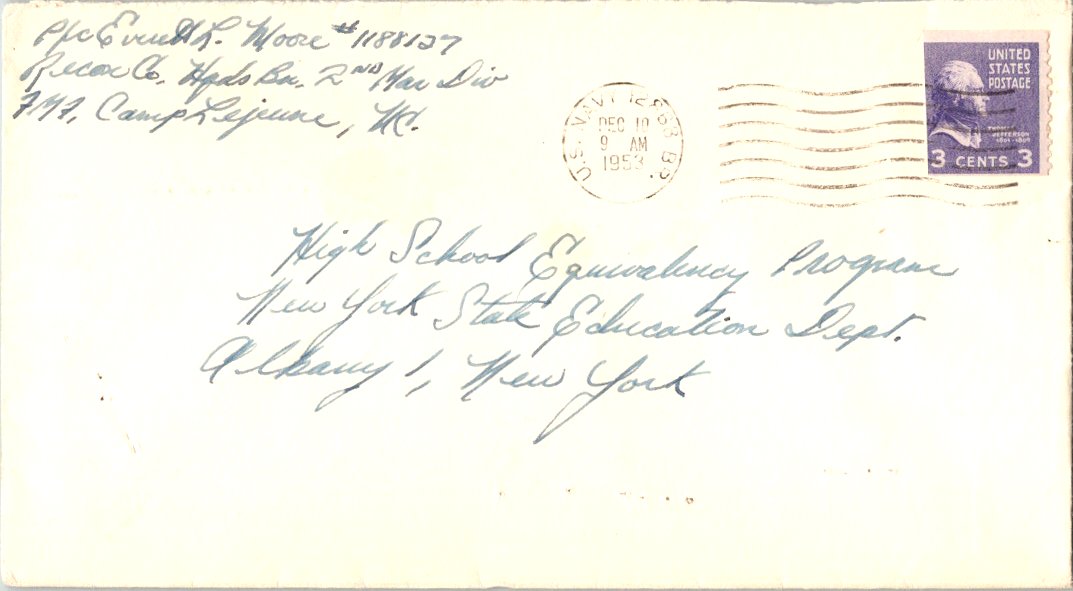 Pfc Everett L. Moore #1188127
Recon Co. Hqds Bn. 2ND Mar Div
FMF, Camp Lejeune, NC.
U.S. NAVY 12863 Br.
DEC 10
9 AM
1953
UNITED
STATES
POSTAGE
THOMAS
JEFFERSON
1801-1809
3 CENTS 3
High School Equivalency Program
New York State Education Dept.
Albany 1, New York